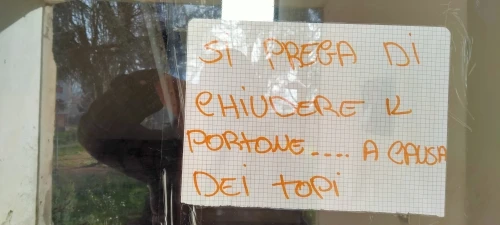 SI PREGA DI
CHIUDERE IL
PORTONE.... A CAUSA
DEI TOPI